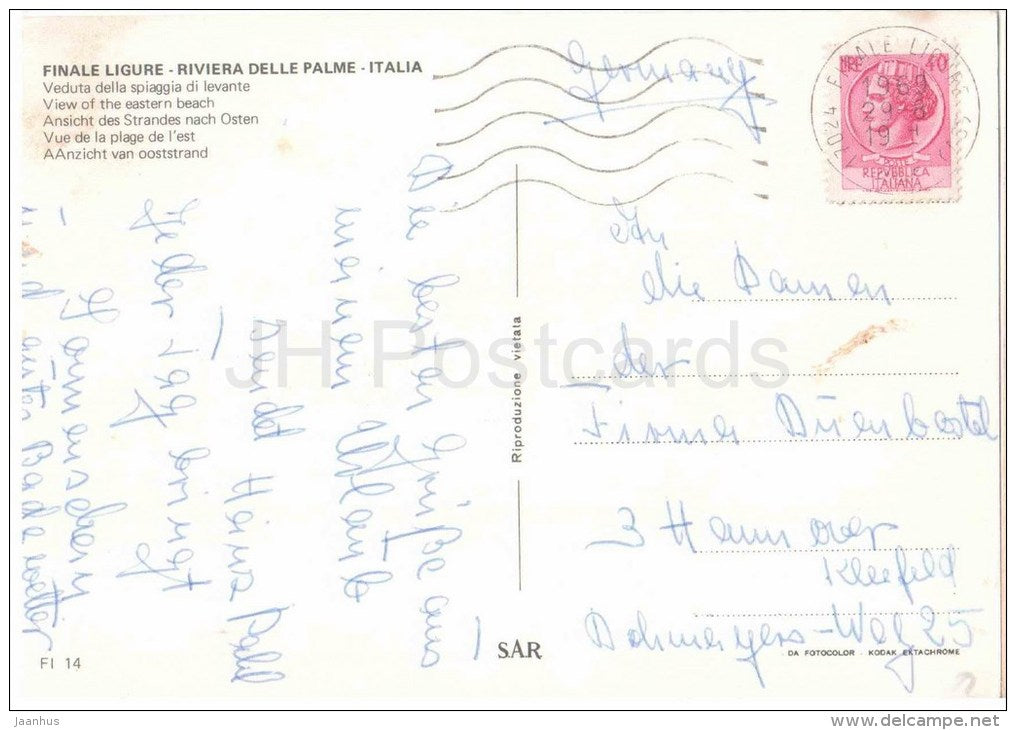 FINALE LIGURE - RIVIERA DELLE PALME - ITALIA
Veduta della spiaggia di levante
View of the eastern beach
Ansicht des Strandes nach Osten
Vue de la plage de l'est
AAnzicht van ooststrand
Germany
40
REPVBBLICA
ITALIANA
1969
29-8
19-
Die besten Grüße aus
meinem Urlaub
sendet Heinz
Jeder Tag bringt
Sonnenschein
und guten Badewetter
Riproduzione vietata
An
die Damen
der
Firma
3 Hannover
Kleefeld
Dohmeyers-Weg 25
FI 14
SAR
DA FOTOCOLOR - KODAK EKTACHROME
JH Postcards
jaanhus
www.delcampe.net